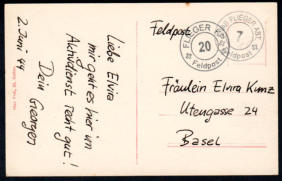 Liebe Elvira
mir geht es hier im
Aktivdienst recht gut!
Dein Georges
2. Juni 44
Feldpost
FLIEGER
20
Feldpost
FLIEGER ABT
7
Feldpost
Fräulein Elvira Kunz
Utengasse 24
Basel